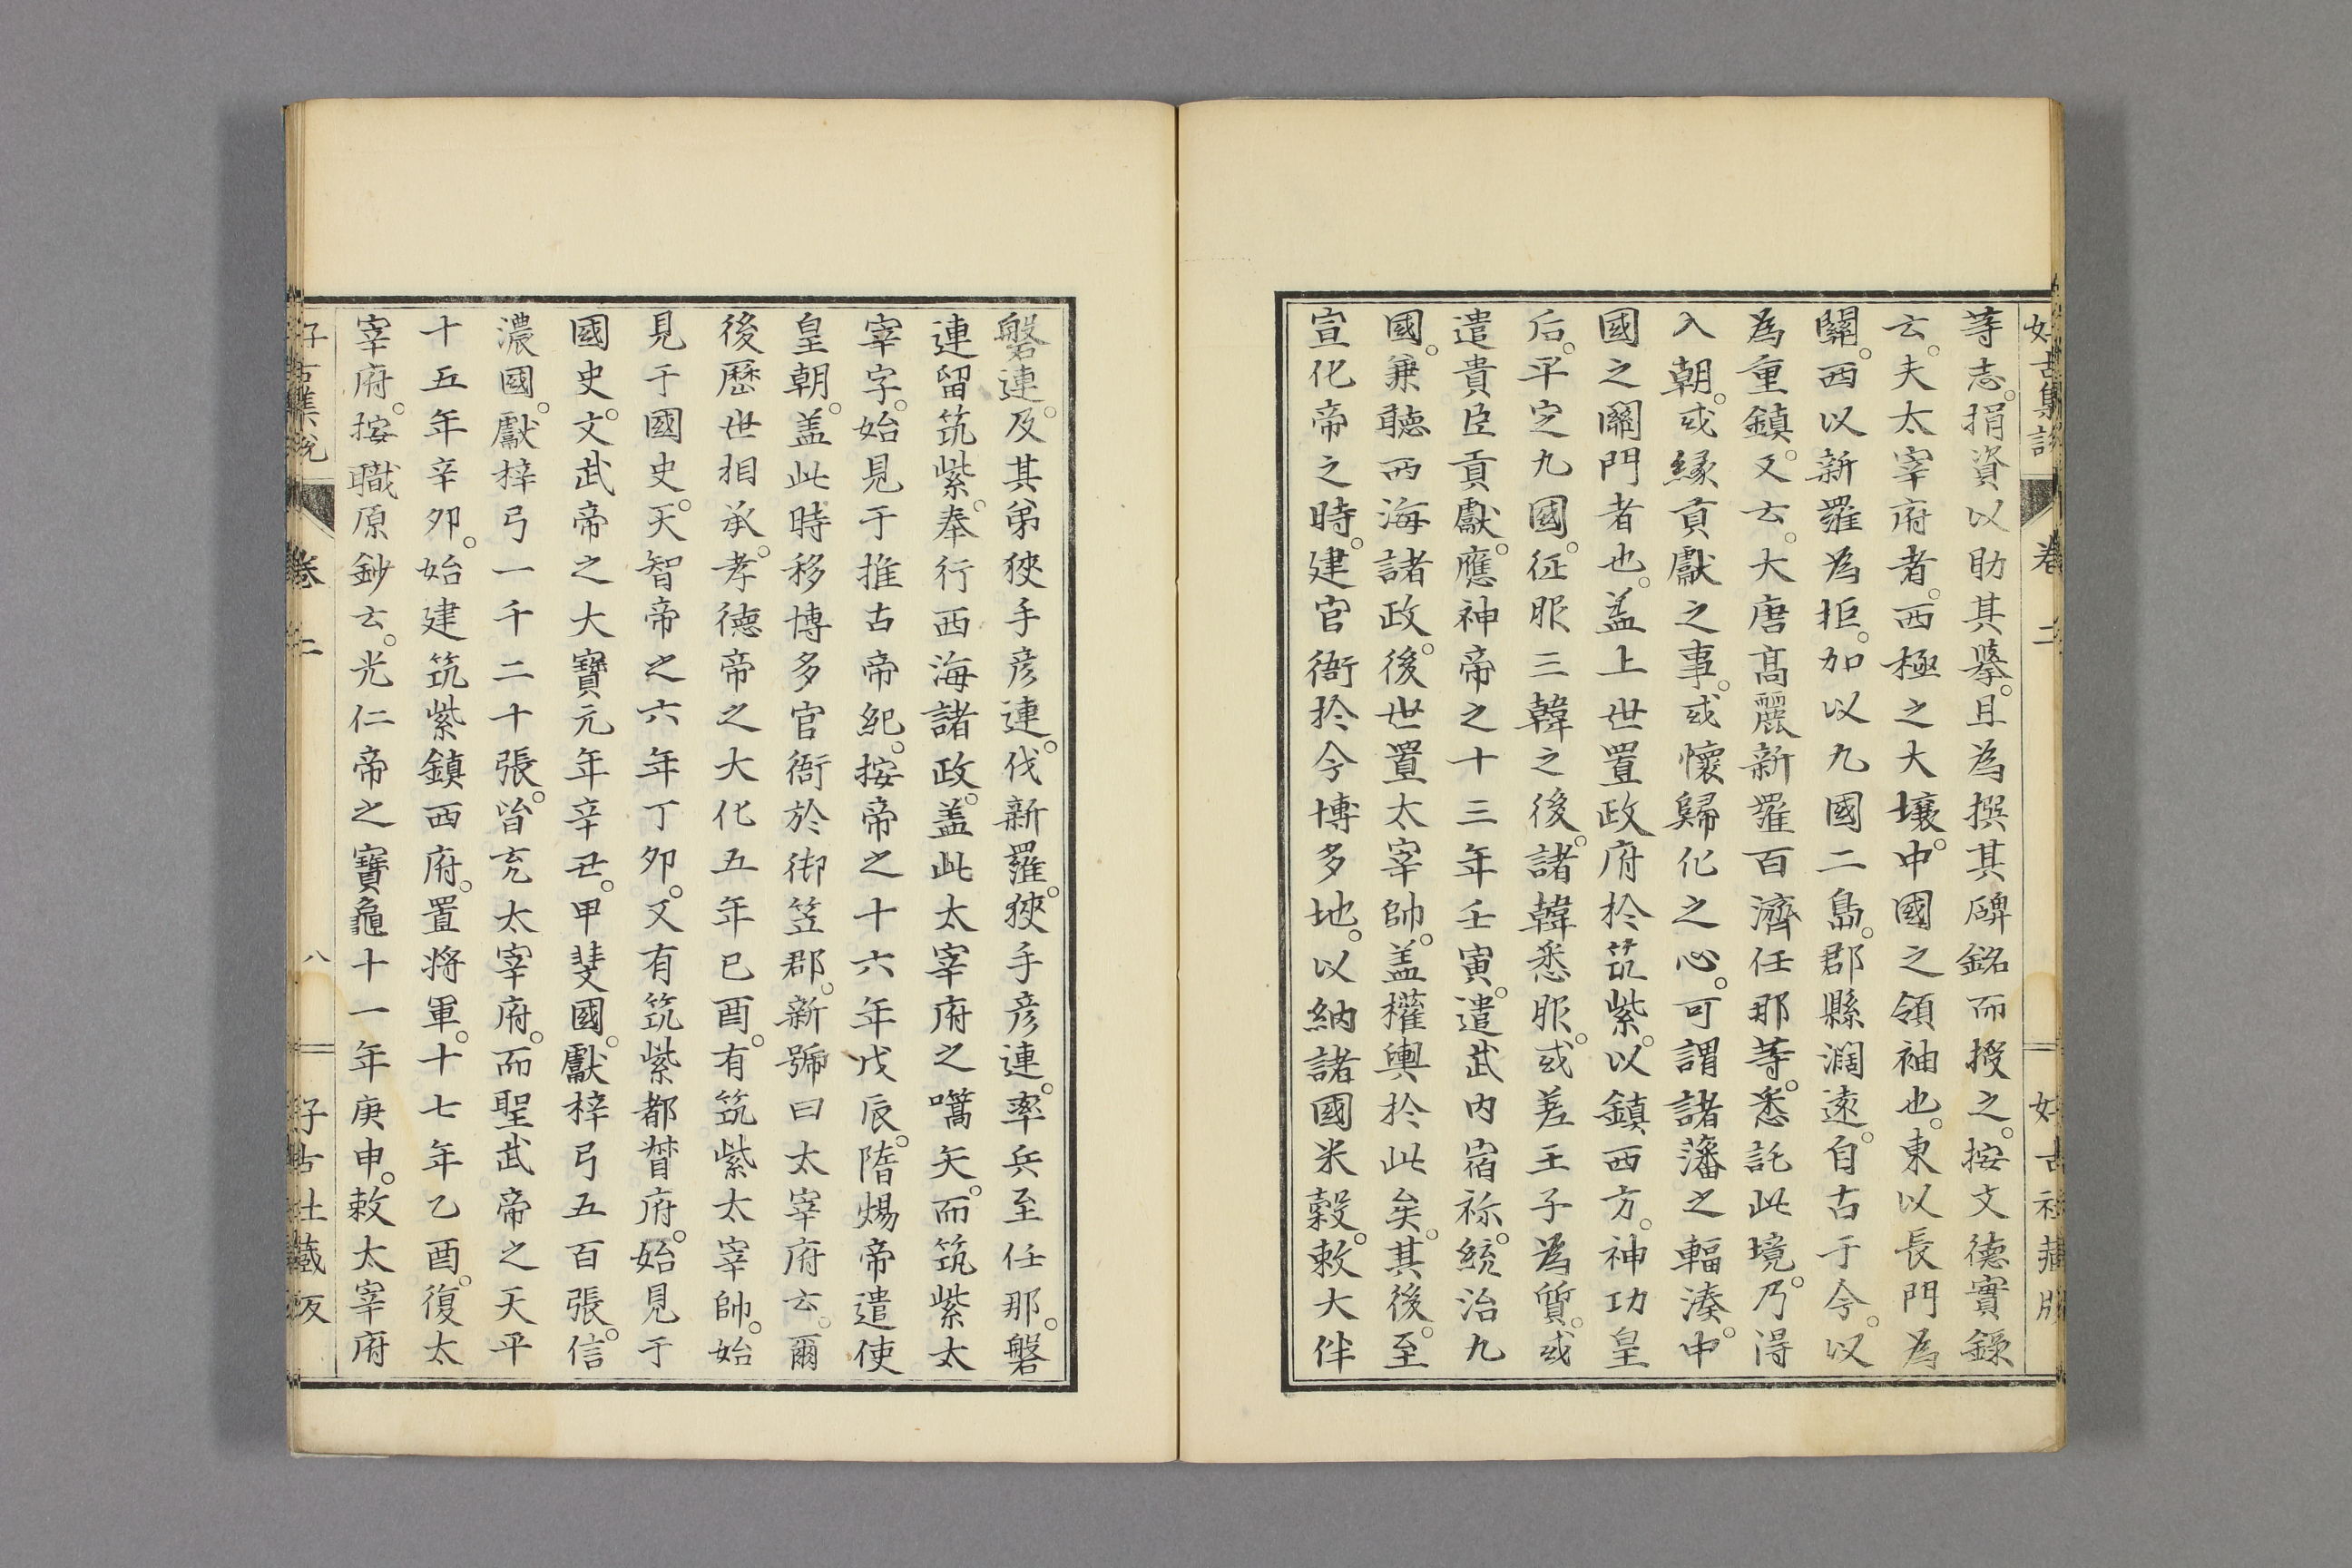 等志。捐資以助其擧。且為撰其碑銘而授之。按文德實錄
云。夫太宰府者。西極之大壤。中國之領袖也。東以長門為
關。西以新羅為拒。加以九國二島。郡縣濶遠。自古于今。以
為重鎮。又云。大唐髙麗新羅百濟任那等。悉託此境。乃得
入朝。或緣貢獻之事。或懷歸化之心。可謂諸藩之輻湊。中
國之關門者也。盖上世置政府於筑紫。以鎮西方。神功皇
后。平定九國。征服三韓之後。諸韓悉服。或差王子為質。或
遣貴臣貢獻。應神帝之十三年壬寅。遣武内宿祢。統治九
國。兼聽西海諸政。後世置太宰帥。盖權輿於此矣。其後。至
宣化帝之時。建官衙於今博多地。以納諸國米穀。敕大伴
磐連。及其弟狹手彦連。伐新羅。狹手彦連。率兵至任那。磐
連留筑紫。奉行西海諸政。盖此太宰府之嚆矢。而筑紫太
宰字。始見于推古帝紀。按帝之十六年戊辰。隋煬帝遣使
皇朝。盖此時移博多官衙於御笠郡。新號曰太宰府云。爾
後歷世相承。孝德帝之大化五年已酉。有筑紫太宰帥。始
見于國史。天智帝之六年丁夘。又有筑紫都督府。始見于
國史。文武帝之大寶元年辛丑。甲斐國。獻梓弓五百張。信
濃國。獻梓弓一千二十張。皆充太宰府。而聖武帝之天平
十五年辛夘。始建筑紫鎮西府。置将軍。十七年乙酉。復太
宰府。按職原鈔云。光仁帝之寶龜十一年庚申。敕太宰府
卷二
八